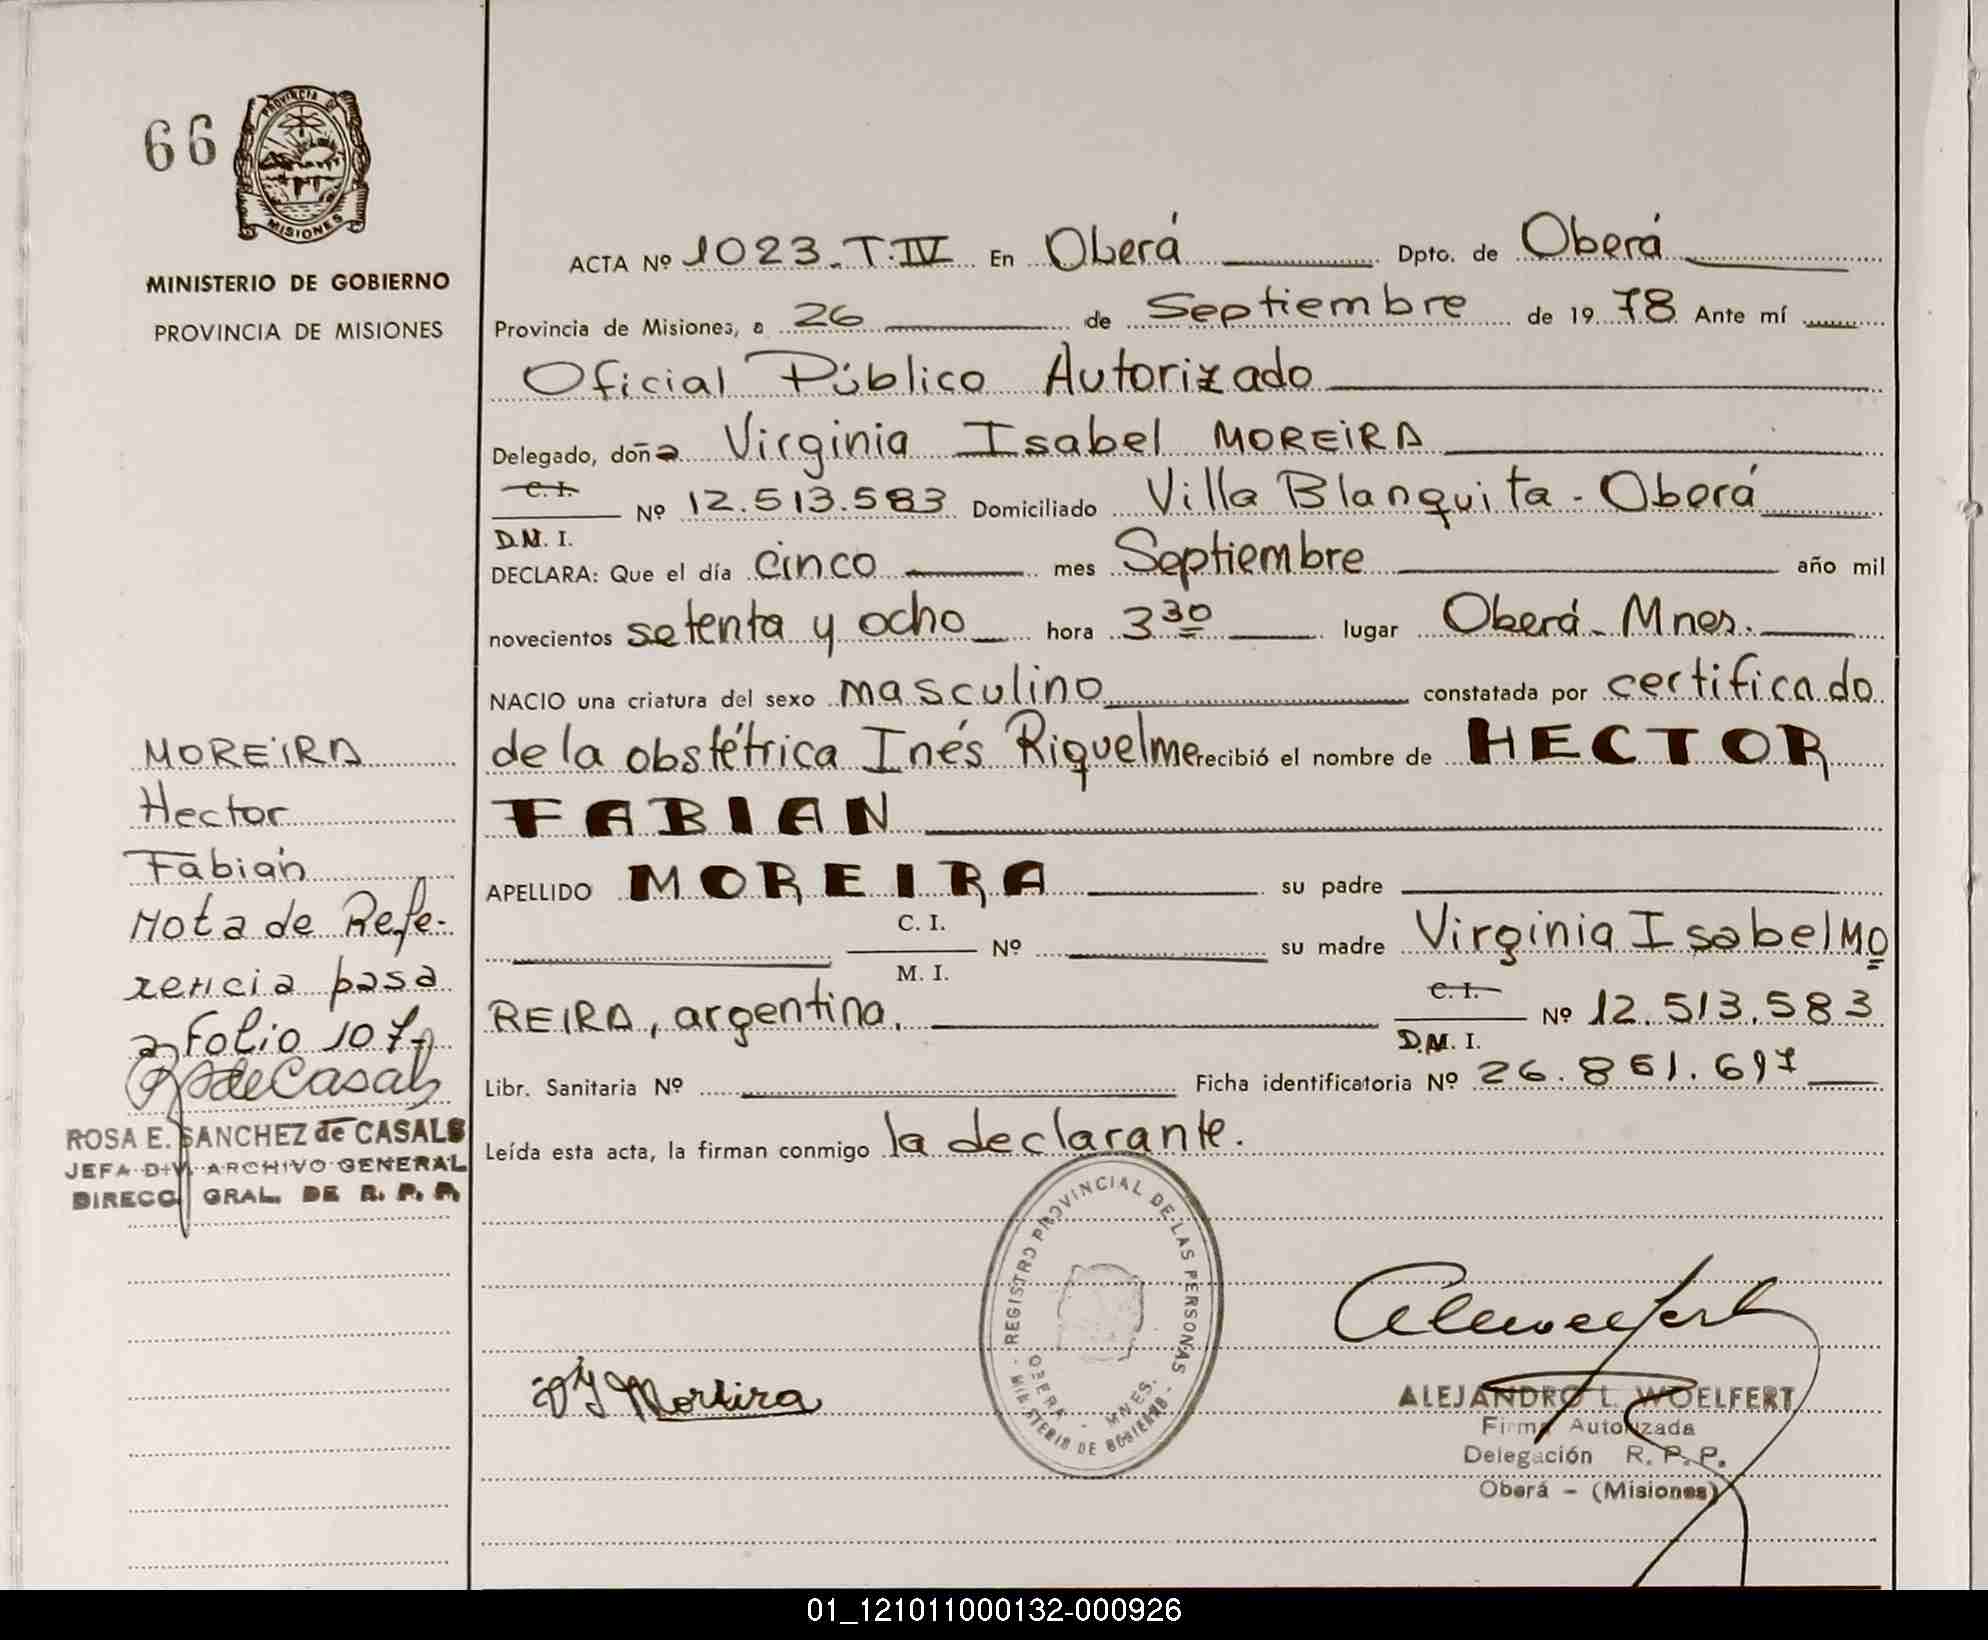 66
PROVINCIA DE
MISIONES
MINISTERIO DE GOBIERNO
PROVINCIA DE MISIONES
ACTA Nº 1023.T.IV En Oberá Dpto. de Oberá
Provincia de Misiones, a 26 de Septiembre de 1978 Ante mí
Oficial Público Autorizado
Delegado, doña Virginia Isabel MOREIRA
C. I.
Nº 12.513.583 Domiciliado Villa Blanquita - Oberá
D.N. I.
DECLARA: Que el día cinco mes Septiembre año mil
novecientos setenta y ocho hora 3 30 lugar Oberá - Mnes.
NACIO una criatura del sexo masculino constatada por certificado
de la obstétrica Inés Riquelme recibió el nombre de HECTOR
FABIAN
APELLIDO MOREIRA su padre
C. I.
Nº su madre Virginia Isabel MO
M. I.
REIRA, argentina.
C. I.
Nº 12.513.583
D.N. I.
Libr. Sanitaria Nº Ficha identificatoria Nº 26.861.697
Leída esta acta, la firman conmigo la declarante.
MOREIRA
Hector
Fabián
Nota de Refe-
rencia pasa
a Folio 107
R S de Casals
ROSA E. SANCHEZ de CASALS
JEFA DIV. ARCHIVO GENERAL
DIRECC. GRAL. DE R. P. P.
REGISTRO PROVINCIAL DE LAS PERSONAS
MINISTERIO DE GOBIERNO
OBERA - MNES.
V I Moreira
ALEJANDRO L. WOELFERT
Firma Autorizada
Delegación R. P. P.
Oberá - (Misiones)
01_121011000132-000926